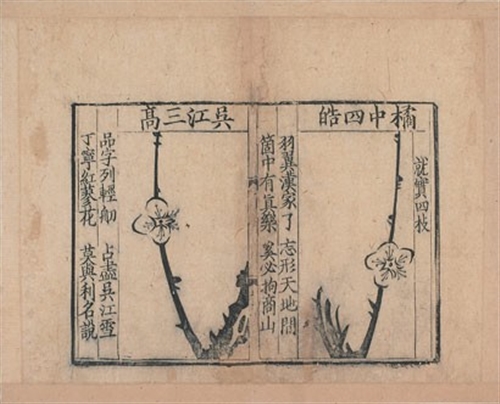 就實四枝
橘中四皓
羽翼漢家了 忘形天地間
箇中有真樂 奚必拘商山
吳江三髙
品字列輕舠 占盡吳江雪
丁寧紅蓼花 莫與利名說